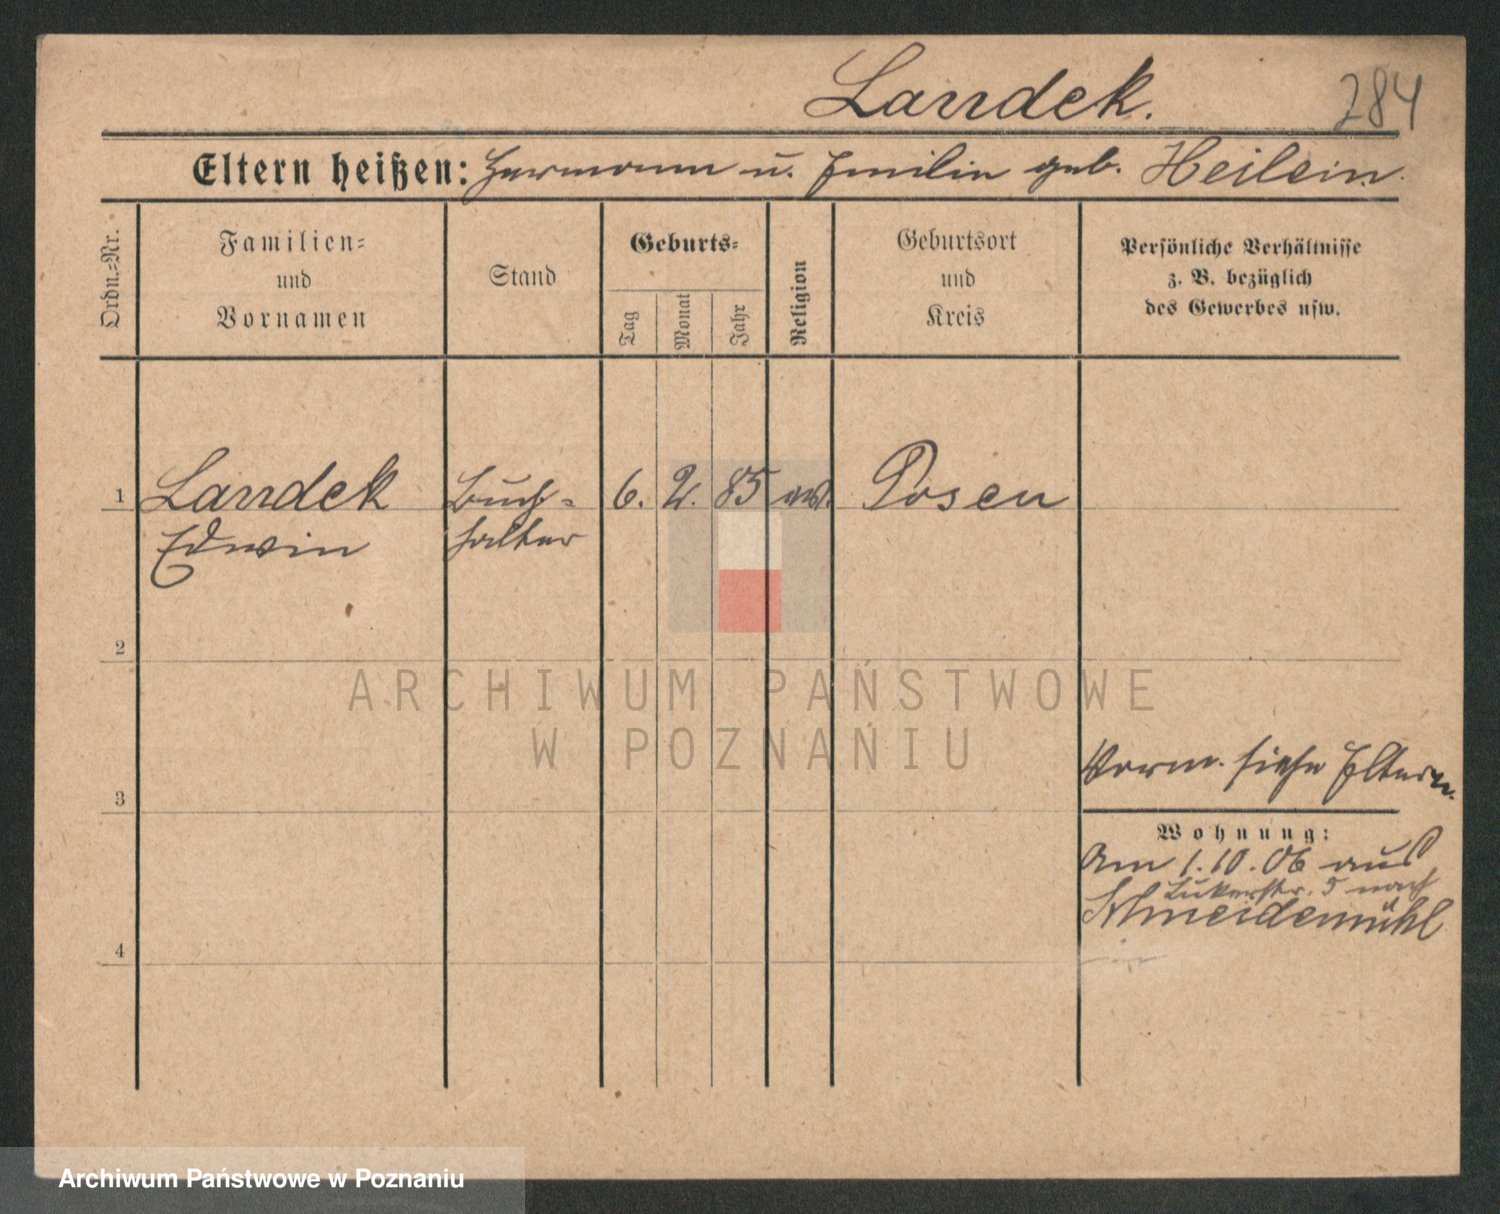 Landek.
284
Eltern heißen: Hermann u. Emilie geb. Heilein.
Ordn.=Nr.
Familien=
und
Vornamen
Stand
Geburts=
Tag
Monat
Jahr
Religion
Geburtsort
und
Kreis
Persönliche Verhältnisse
z. B. bezüglich
des Gewerbes usw.
1 Landek Buch= 6. 2. 85 Posen
Edwin halter
2
ARCHIWUM PAŃSTWOWE
W POZNANIU
Vorm. siehe Eltern.
3
Wohnung:
Am 1.10.06 aus
5 nach
Schneidemühl
4
Archiwum Państwowe w Poznaniu